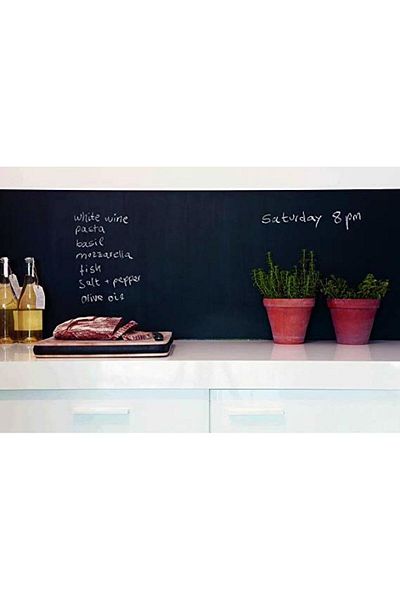 white wine
pasta
basil
mozzarella
fish
salt + pepper
olive oil
Saturday 8pm